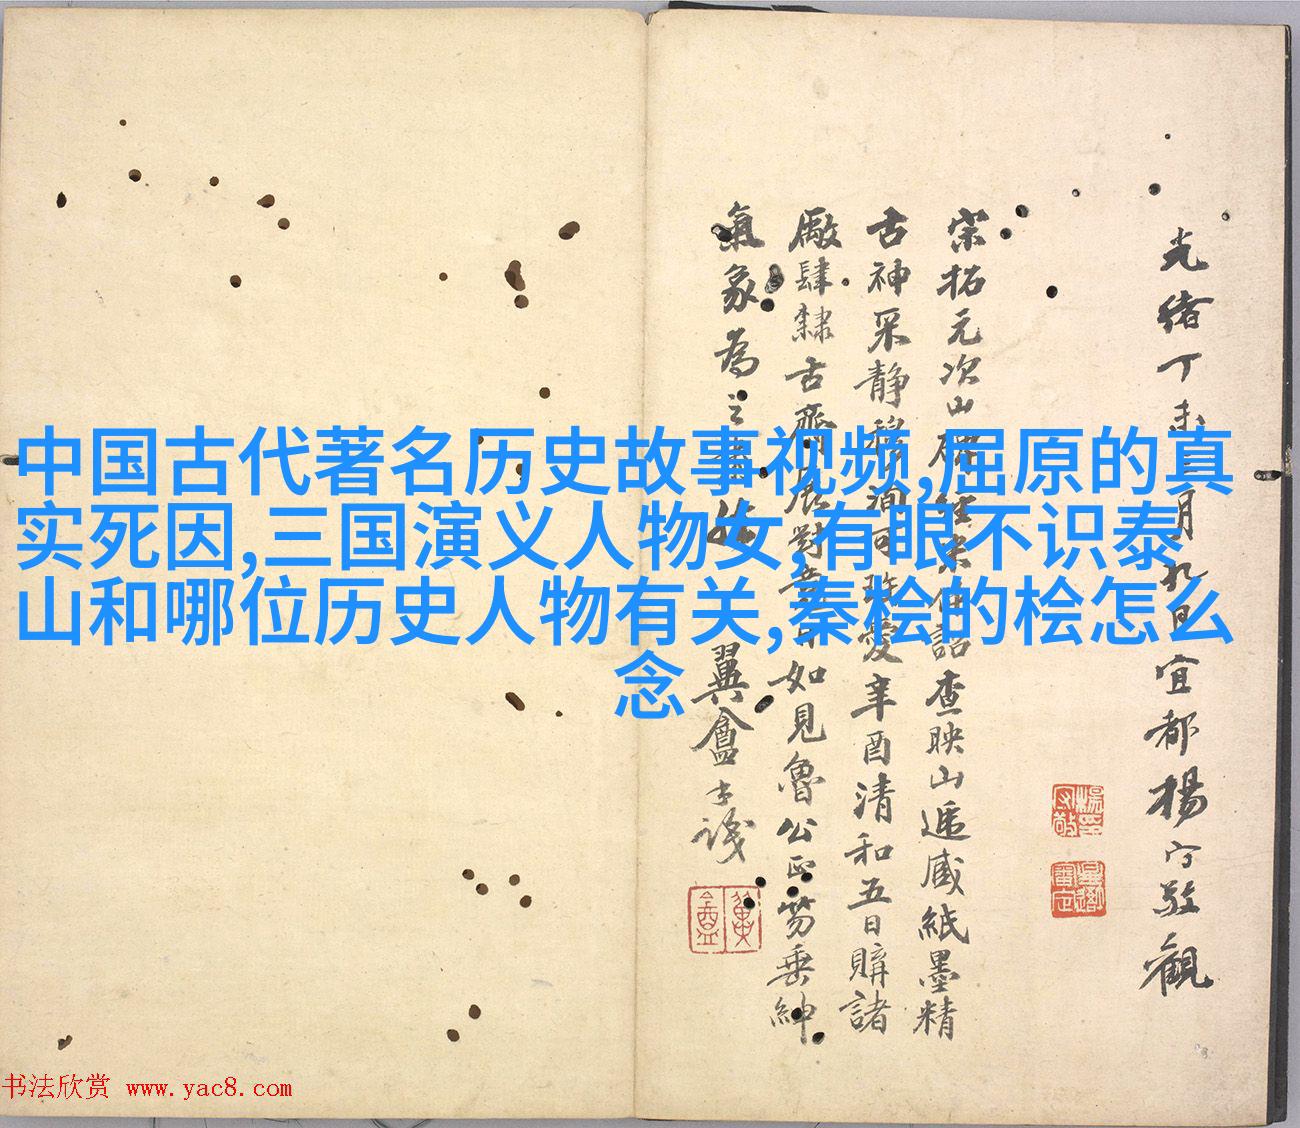 中国古代著名历史故事视频,屈原的真
实死因,三国演义人物女,有眼不识泰
山和哪位历史人物有关,秦桧的桧怎么
念
光绪丁未三月九日宜都楊守敬觀
宋拓元次山碑經朱
詒查映山遞感紙墨精
古神采静穆洵可
愛辛酉清和五日購諸
廠肆隸古齋展對
如見魯公正笏垂紳
氣象為之
翼盫士識
书法欣赏 www.yac8.com